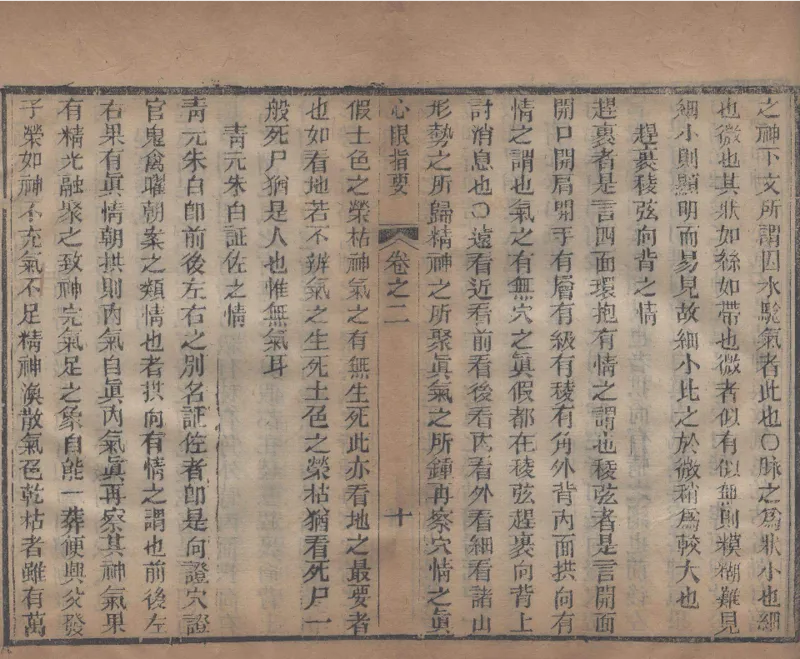 之神下文所謂因水驗氣者此也〇脉之爲狀小也細
也微也其狀如絲如帶也微者似有似無則糢糊難見
細小則顯明而易見故細小比之於微稍爲較大也
趕裹稜弦向背之情
趕裹者是言四面環抱有情之謂也稜弦者是言開面
開口開肩開手有層有級有稜有角外背内面拱向有
情之謂也氣之有無穴之眞假都在稜弦趕裹向背上
討消息也〇遠看近看前看後看内看外看細看諸山
形勢之所歸精神之所聚眞氣之所鍾再察穴情之眞
心眼指要
卷之二
十
假土色之榮枯神氣之有無生死此亦看地之最要者
也如看地若不辨氣之生死土色之榮枯猶看死尸一
般死尸猶是人也惟無氣耳
靑元朱白証佐之情
靑元朱白卽前後左右之別名証佐者卽是向證穴證
官鬼禽曜朝案之類情也者拱向有情之謂也前後左
右果有眞情朝拱則内氣自眞内氣眞再察其神氣果
有精光融聚之致神完氣足之象自能一葬便興炎發
子榮如神不充氣不足精神渙散氣色乾枯者雖有萬